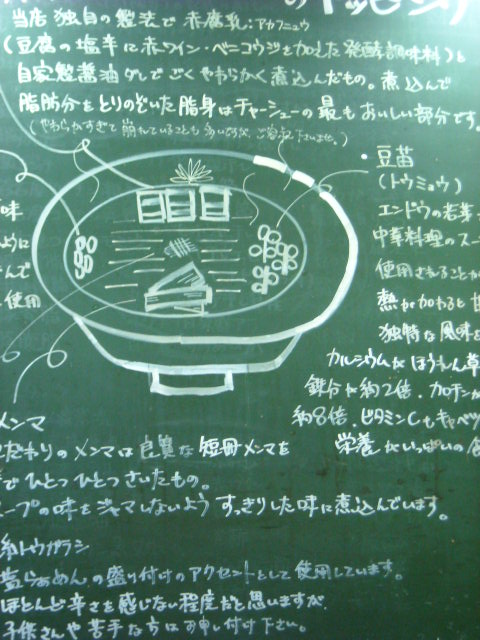 のトッピング
当店 独自の製法で 赤腐乳:アカフニュウ
(豆腐の塩辛に赤ワイン・ベニコウジを加えた発酵調味料)と
自家製醤油ダレでごくやわらかく煮込んだもの。煮込んで
脂肪分をとりのぞいた脂身はチャーシューの最もおいしい部分です。
(やわらかすぎて崩れていることも多いですが、ご容赦下さいませ。)
・豆苗
(トウミョウ)
エンドウの若芽
中華料理のスー
使用されることが
熱が加わると甘
独特な風味
カルシウムが ほうれん草
鉄分が約2倍、カロチンが
約8倍、ビタミンCもキャベツ
栄養がいっぱいの
味
ように
んで
使用
メンマ
こだわりのメンマは良質な短冊メンマを
で ひとつひとつさいたもの。
ープの味をジャマしないよう すっきりした味に煮込んでいます。
糸トウガラシ
塩らぁめんの盛り付けのアクセントとして使用しています。
ほとんど辛さを感じない程度だと思いますが
子様さんや苦手な方はお申し付け下さい。